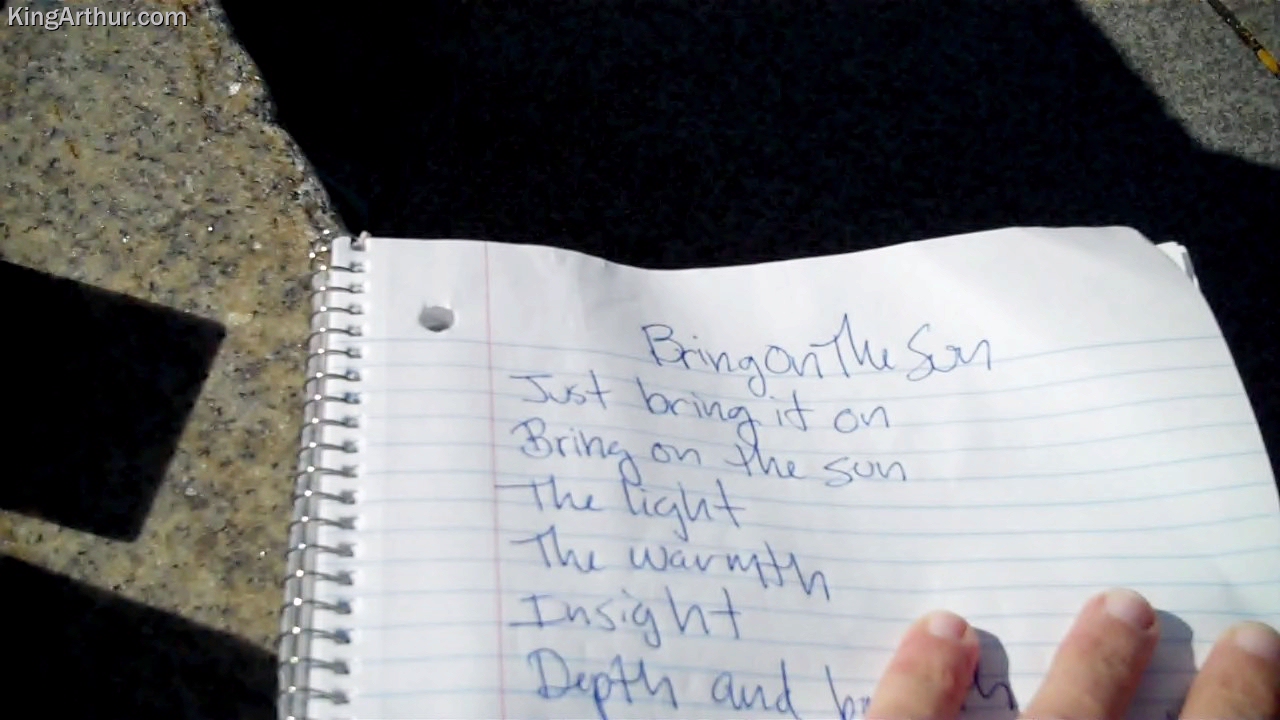 KingArthur.com
Bring On The Sun
Just bring it on
Bring on the sun
The light
The warmth
Insight
Depth and